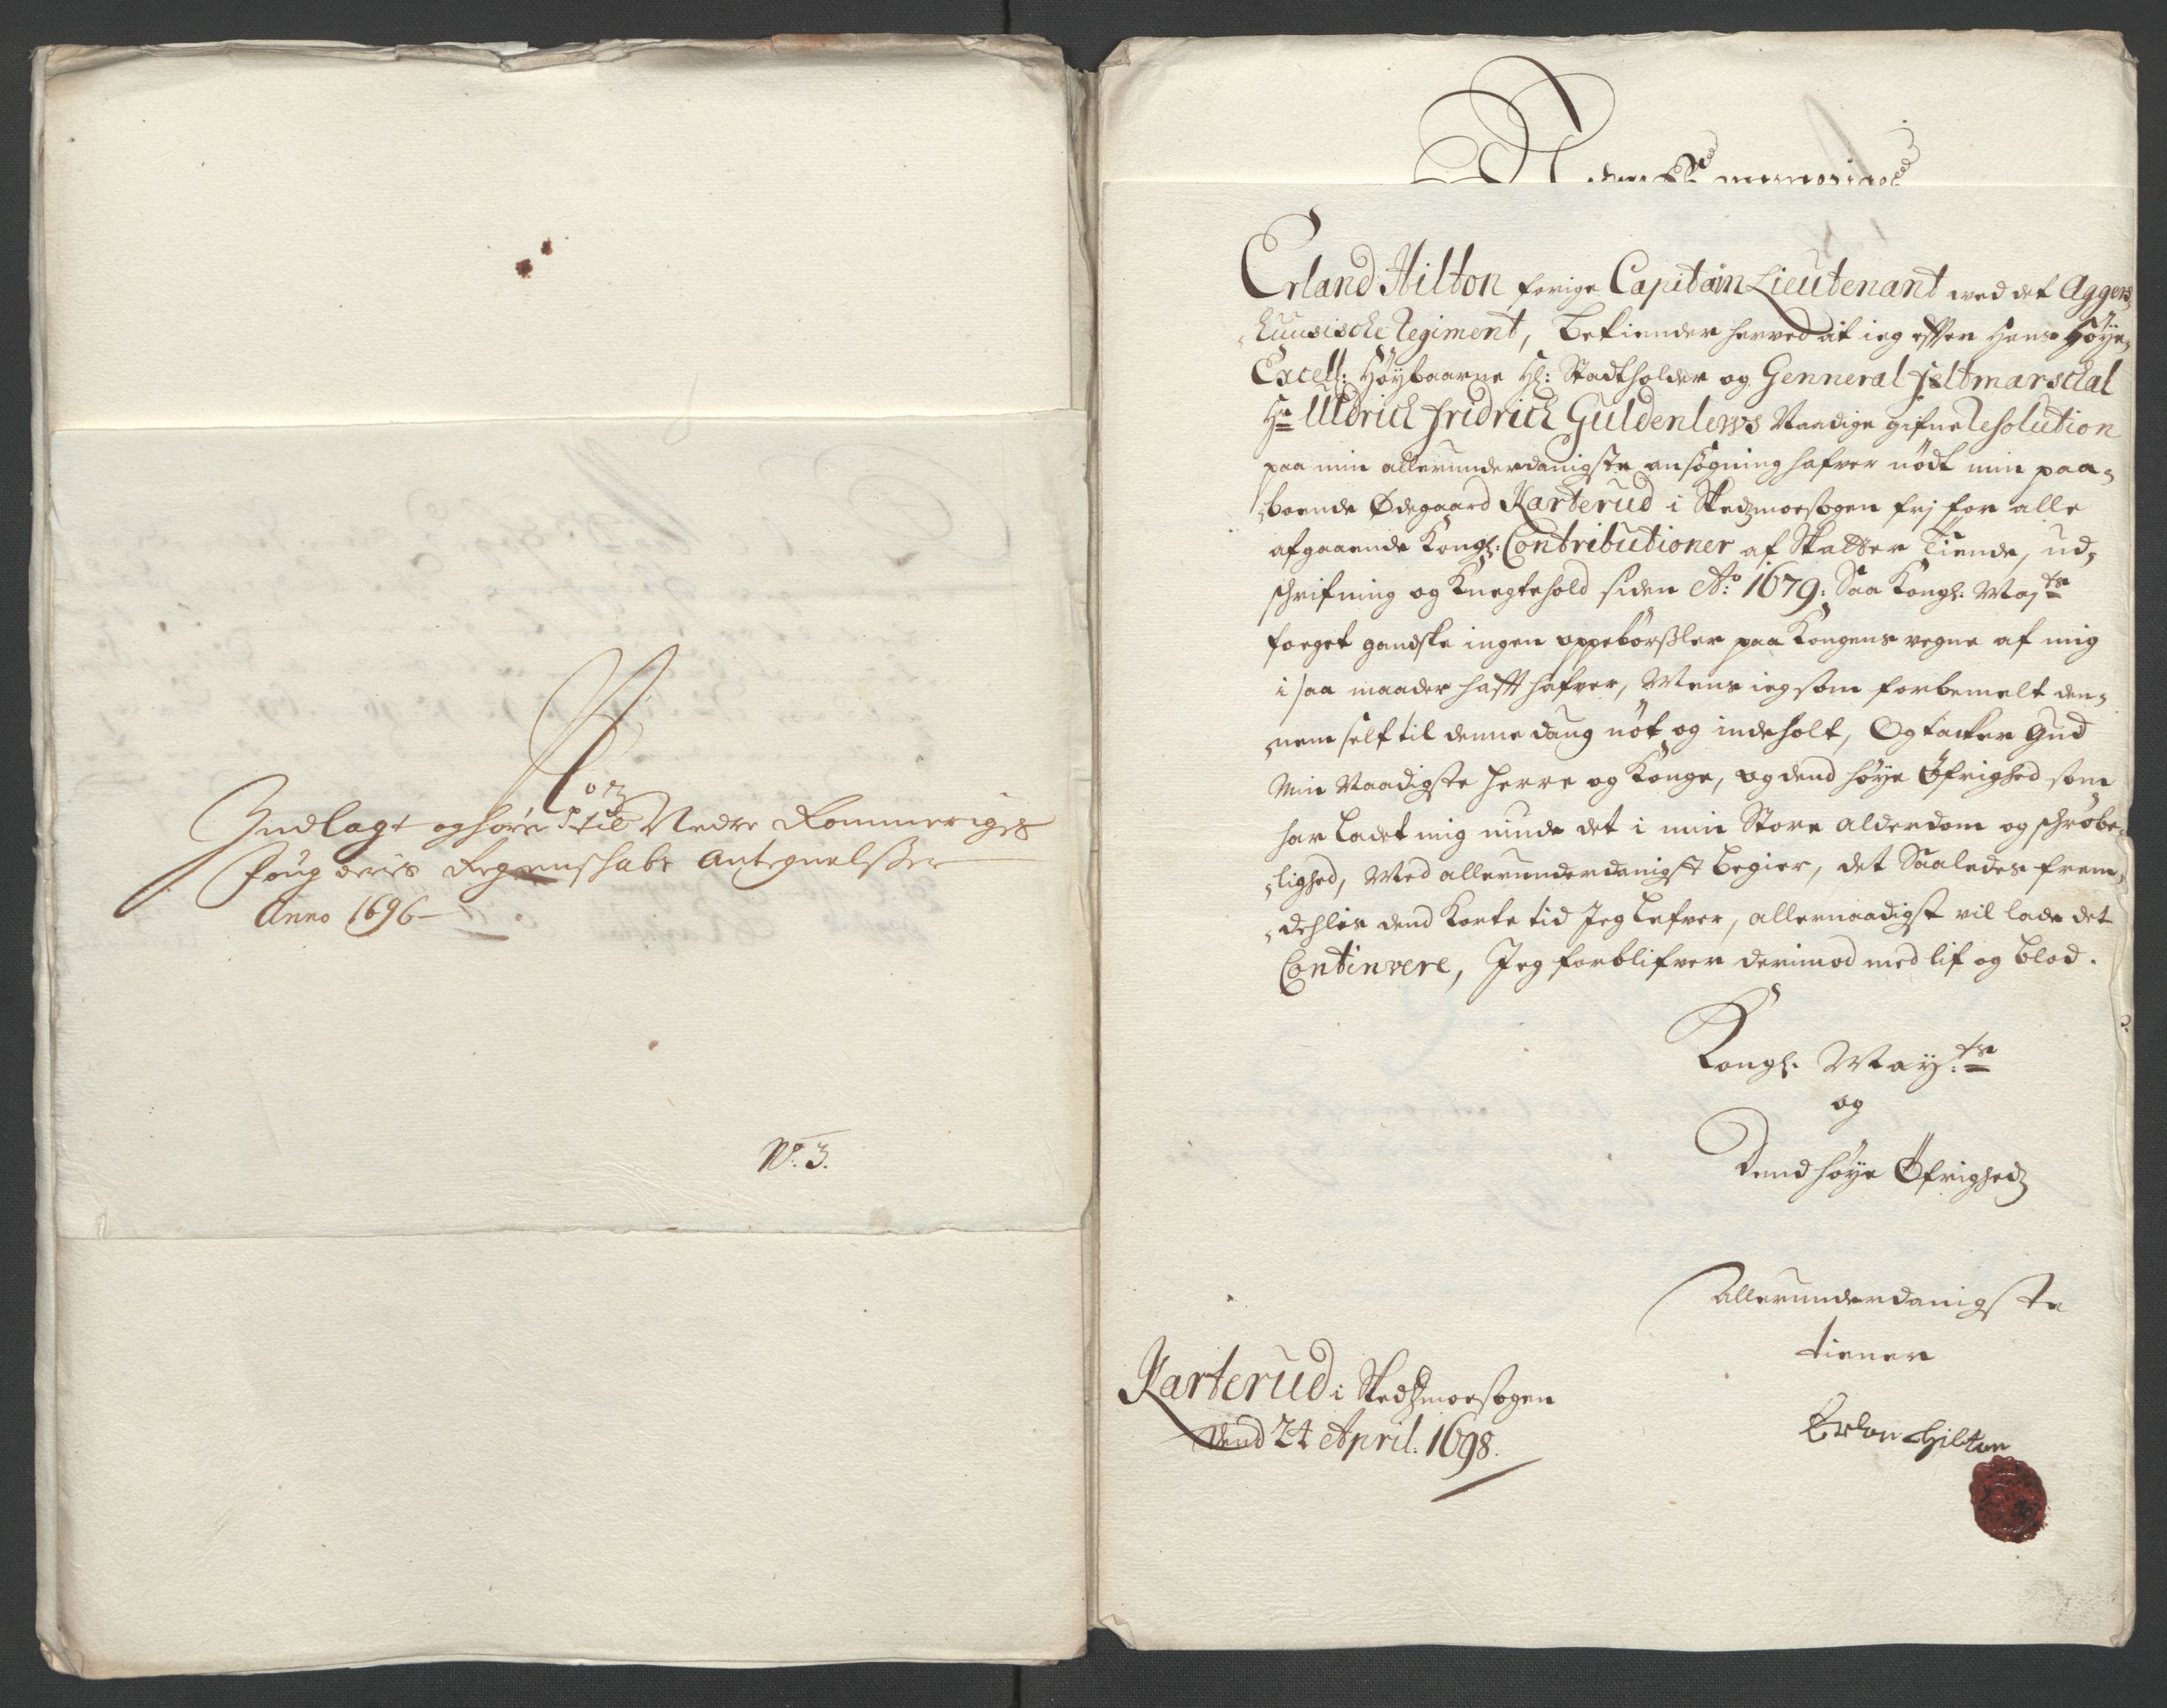 Indlagt og hører til Nedre Rommeriges
Fougderis Regenskabs Antegnelser
Anno 1696
No. 3.
Erland Hilton forige Capitain Lieutenant wed det Aggers-
huusische Regiment, bekiender herved at ieg efter Hans Høye
Excell: Høybaarne Hr: Stadtholder og Genneral Feltmarschal
Hr Uldrich Fridrich Guldenlews Naadige gifne Resolution
paa min allerunderdanigste ansøgning hafver nødt min paa-
boende Ødegaard Karterud i Skedzmoe sogen frj for alle
afgaaende Kongl: Contributioner af Skatter Tiende, ud-
schrifning og Knegtehold siden Ao: 1679. Saa Kongl. Mayts
foeget gandske ingen oppebørsler paa Kongens vegne af mig
i saa maader hafft hafver, Mens ieg som forbemelt den-
nem self til denne daug nøt og indeholt, Og tacker Gud
Min Naadigste Herre og Konge, og dend høye Øfrighed som
har ladet mig niude det i min Store alderdom og schrøbe-
lighed, Med allerunderdanigst begier, det Saaledes frem-
dehlis dend korte tid Jeg lefver, allernaadigst vil lade det
Continvere, Jeg forblifver derimod med lif og blod.
Kongl. May:ts
og
Dend høye Øfrighedz
Allerunderdanigste
tiener
Karterud i Skedzmoe sogen
dend 24 April. 1698.
Erlan Hilton